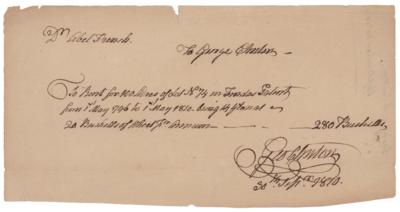 Dr. Abel French
To George Clinton
To Rent for 100 Acres of Lot No. 74 in Patent
from 1st May 1796 to 1st May 1810. being 14 Years at
20 Bushells of Wheat pr. Annum 280 Bushells
Geo. Clinton
20th 1810.